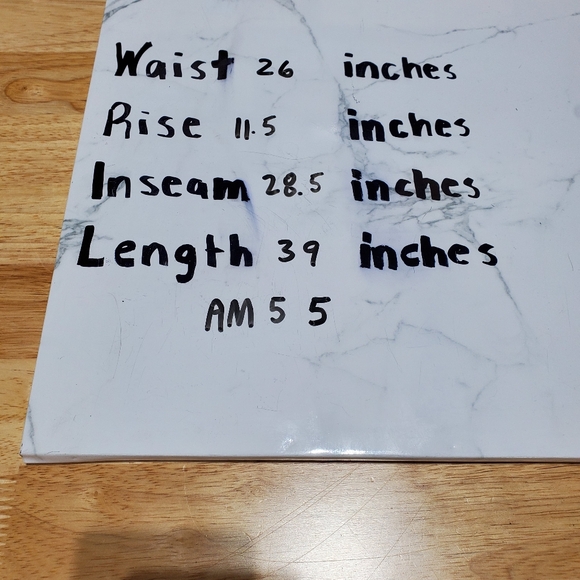 Waist 26 inches
Rise 11.5 inches
Inseam 28.5 inches
Length 39 inches
AM 5 5